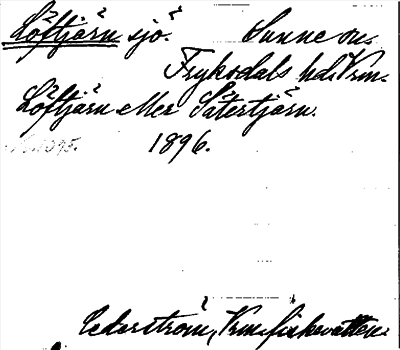 Löftjärn sjö. Sunne sn.
Fryksdals hd. Vrm.
Löftjärn eller Sätertjärn.
1896.
Cederström, Vrm. fiskevatten.